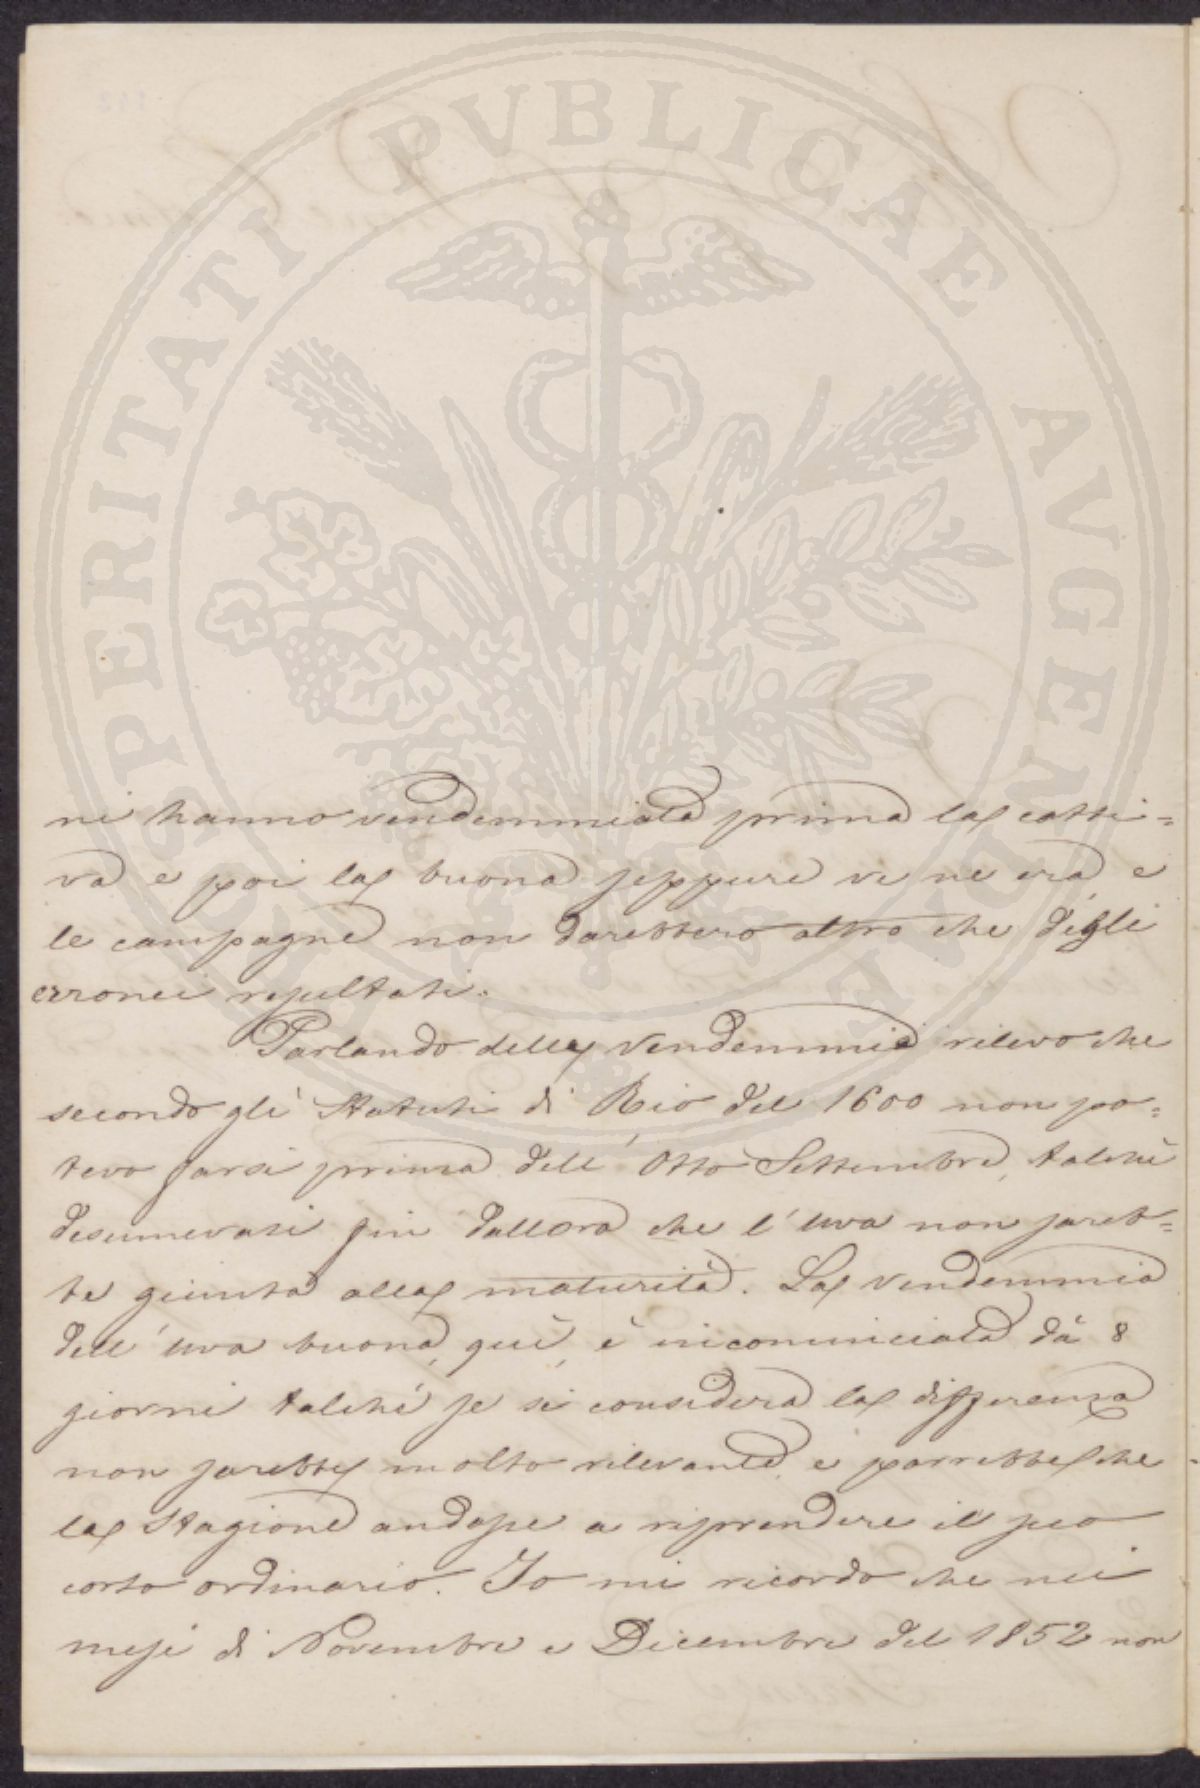 PROSPERITATI PVBLICAE AVGENDAE
ni hanno vendemmiata prima la catti=
va e poi la buona seppure ve ne era, e
le campagne non darebbero altro che degli
erronei resultati.
Parlando della Vendemmia rilevo che
secondo gli Statuti di Rio del 1600 non po=
teva farsi prima dell' Otto Settembre, talchè
desumevasi fin dallora che l'uva non sareb=
be giunta alla maturità. La Vendemmia
dell'uva buona, quì, è incominciata dà 8
giorni talchè se si considera la differenza
non sarebbe molto rilevante, e parrebbe che
la Stagione andasse a riprendere il suo
corso ordinario. Io mi ricordo che nei
mesi di Novembre e Dicembre del 1852 non